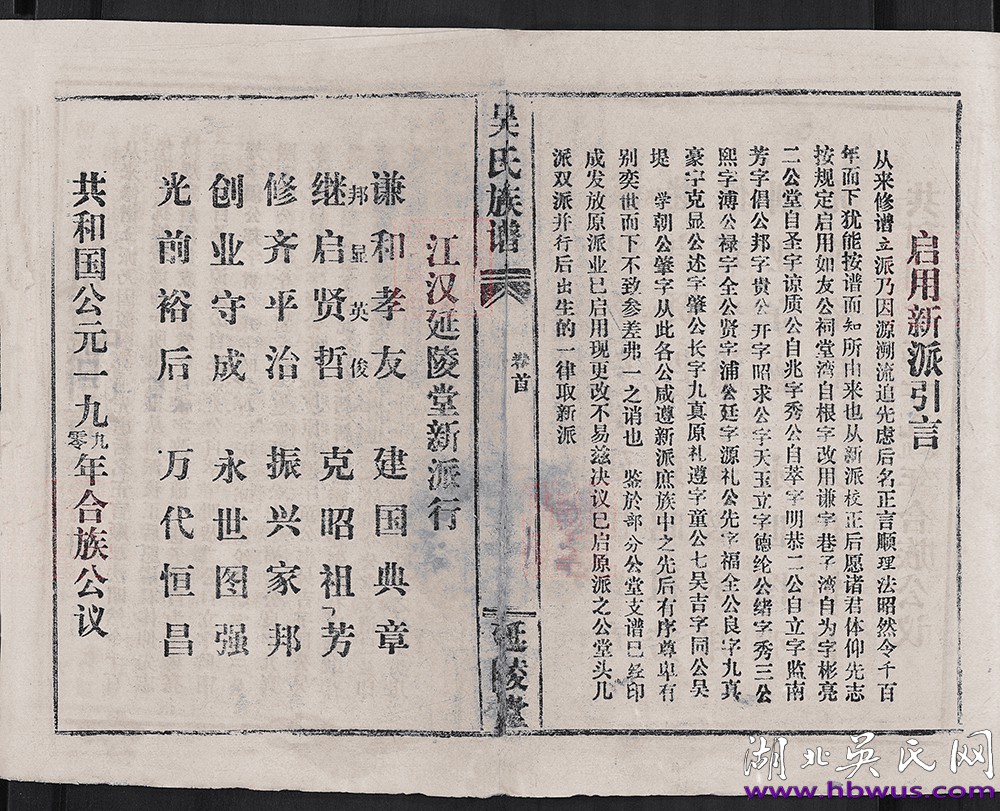 启用新派引言
从来修谱立派乃因源溯流追先虑后名正言顺理法昭然令千百
年面下犹能按谱而知所由来也从新派校正后愿诸君体仰先志
按规定启用如友公祠堂湾自根字改用谦字巷子湾自为字彬亮
二公堂自圣字谅质公自兆字秀公自萃字明恭二公自立字监南
芳字倡公邦字贵公开字昭求公字天玉立字德纶公绪字秀三公
熙字溥公禄字全公贤字浦公廷字源礼公先字福全公良字九真
豪字克显公述字肇公长字九真原礼遵字童公七吴吉字同公吴
堤 学朝公肇字从此各公咸遵新派庶族中之先后有序尊卑有
别奕世而下不致参差弗一之诮也 鉴於部分公堂支谱已经印
成发放原派业已启用现更改不易兹决议已启原派之公堂头几
派双派并行后出生的一律取新派
吴氏族谱
卷首
延陵堂
江汉延陵堂新派行
谦和孝友 建国典章
邦显英俊
继启贤哲 克昭祖芳
修齐平治 振兴家邦
创业守成 永世图强
光前裕后 万代恒昌
共和国公元一九九零年合族公议
湖北吴氏网
www.hbwus.com